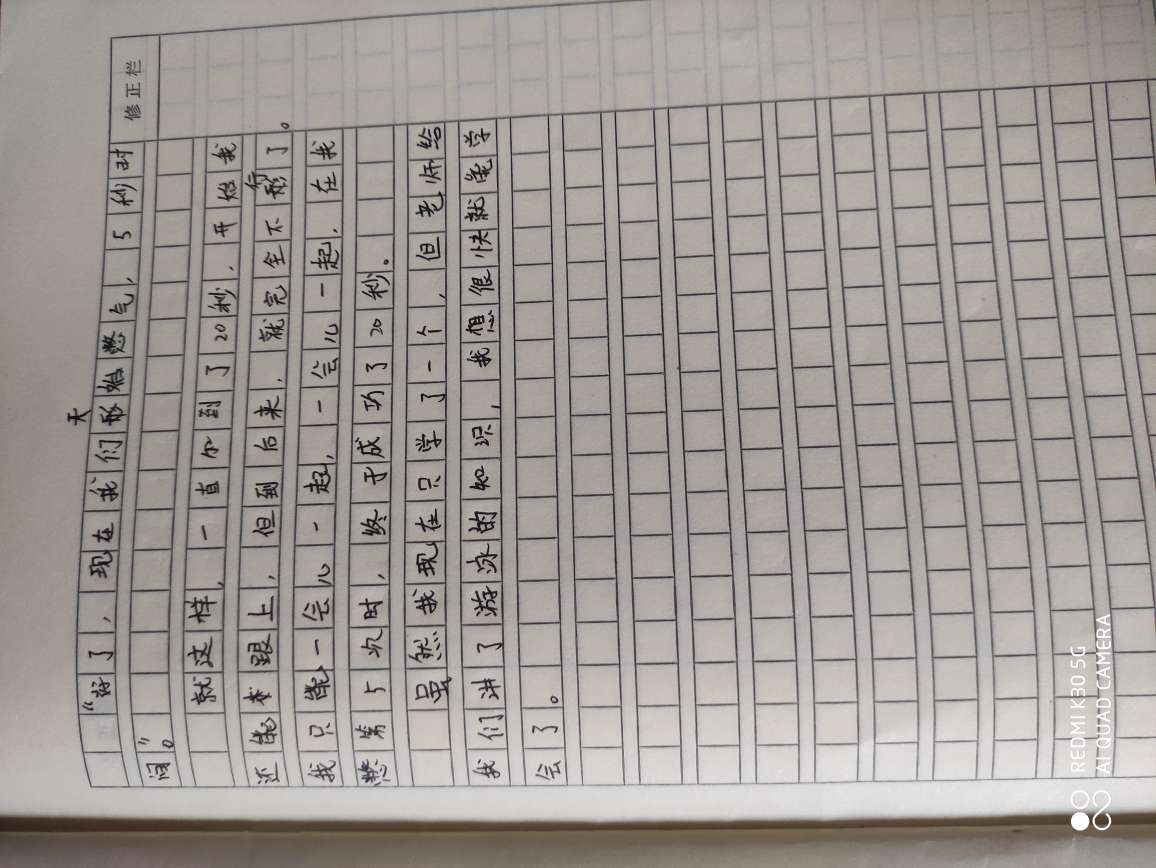 修正栏
天
“好了，现在我们形始憋气，5秒时
间。”
就这样，一直尔到了20秒，开始我
行
还能跟上，但到后来，就完全不形了。
我只能一会儿一起，一会儿一起，在我
憋第5次时，终于成功了20秒。
虽然我现在只学了一个，但老师给
我们讲了游泳的知识，我想很快就能学
会了。
REDMI K30 5G
AI QUAD CAMERA